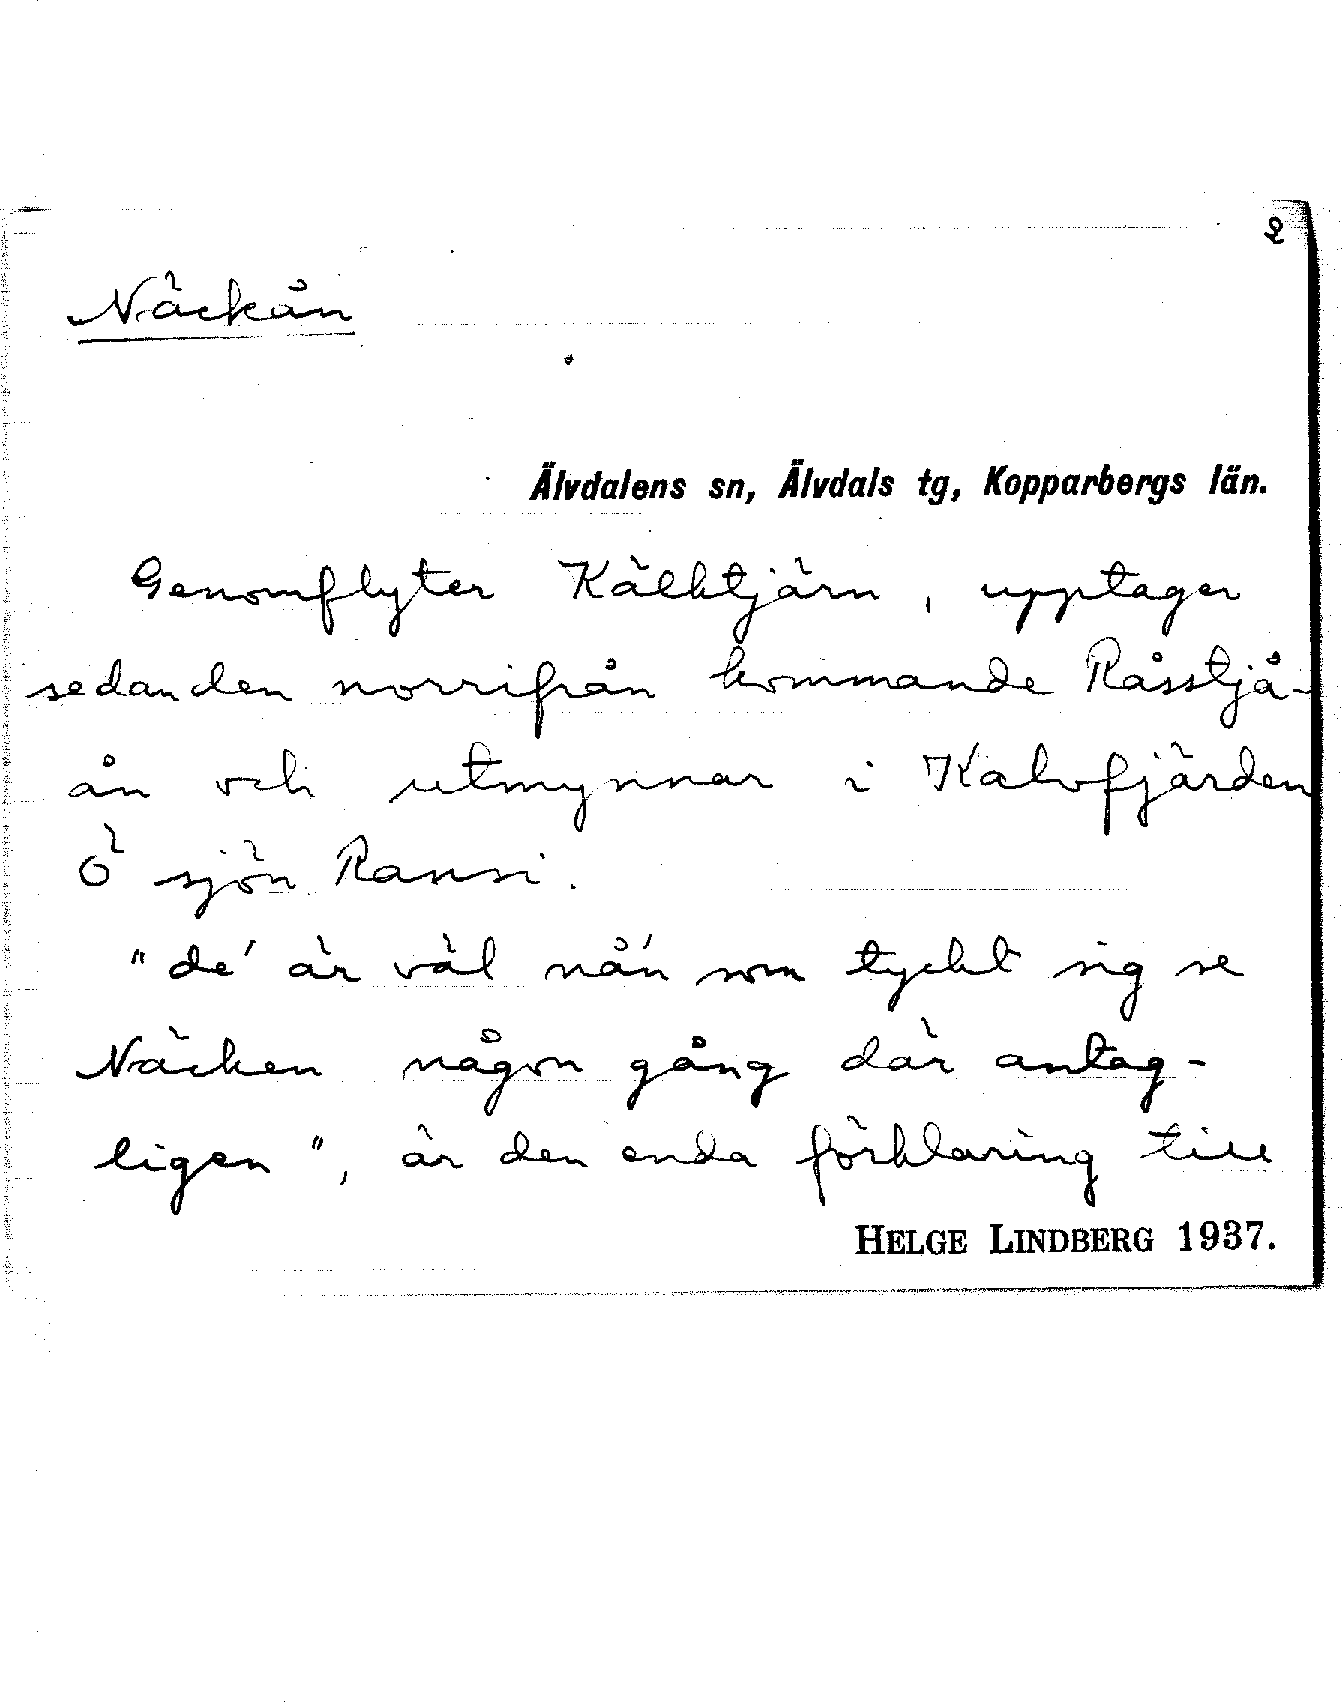 2
Näckån
Älvdalens sn, Älvdals tg, Kopparbergs län.
Genomflyter Kälktjärn, upptager
sedan den norrifrån kommande Råsstjå-
ån och utmynnar i Kalvfjärden
Ö sjön Ransi.
"de' är väl nå'n som tyckt sig se
Näcken någon gång där antag-
ligen", är den enda förklaring till
HELGE LINDBERG 1937.